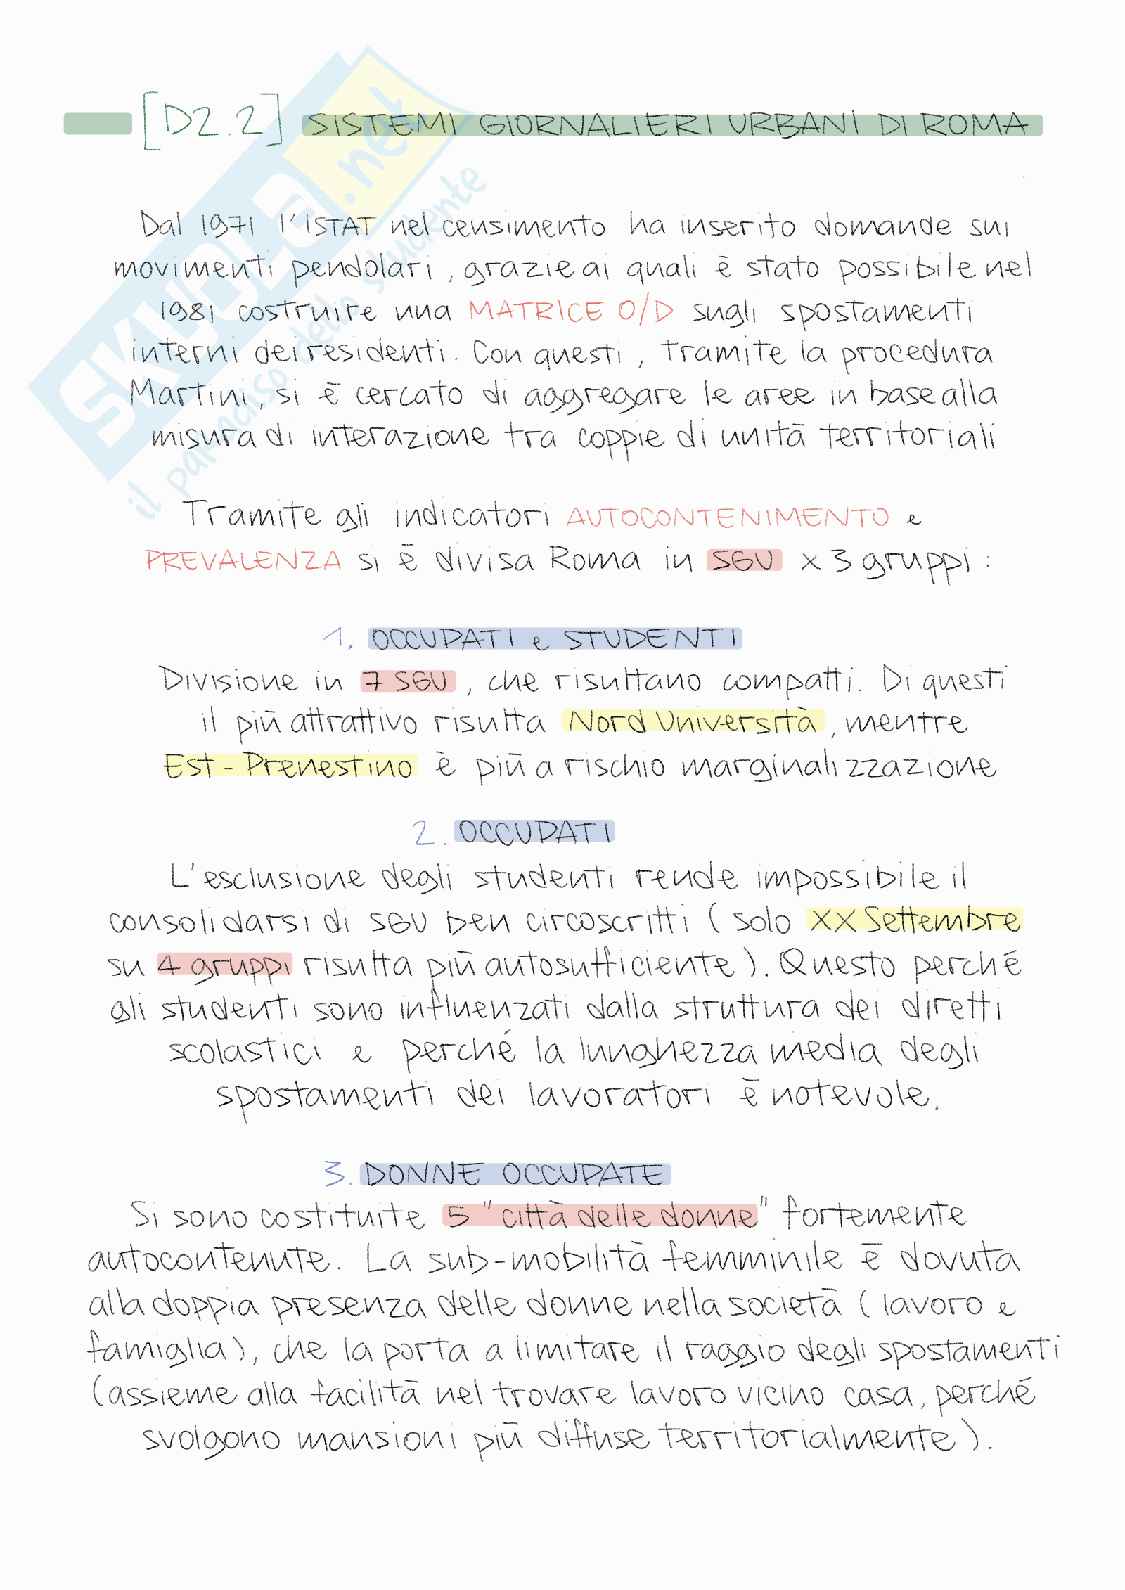 [D2.2] SISTEMI GIORNALIERI URBANI DI ROMA
Dal 1971 l'ISTAT nel censimento ha inserito domande sui
movimenti pendolari, grazie ai quali è stato possibile nel
1981 costruire una MATRICE O/D sugli spostamenti
interni dei residenti. Con questi, tramite la procedura
Martini, si è cercato di aggregare le aree in base alla
misura di interazione tra coppie di unità territoriali
Tramite gli indicatori AUTOCONTENIMENTO e
PREVALENZA si è divisa Roma in SGU x 3 gruppi:
1. OCCUPATI e STUDENTI
Divisione in 7 SGU, che risultano compatti. Di questi
il più attrattivo risulta Nord Università, mentre
Est - Prenestino è più a rischio marginalizzazione
2. OCCUPATI
L'esclusione degli studenti rende impossibile il
consolidarsi di SGU ben circoscritti (solo XX Settembre
su 4 gruppi risulta più autosufficiente). Questo perché
gli studenti sono influenzati dalla struttura dei diretti
scolastici e perché la lunghezza media degli
spostamenti dei lavoratori è notevole.
3. DONNE OCCUPATE
Si sono costituite 5 "città delle donne" fortemente
autocontenute. La sub-mobilità femminile è dovuta
alla doppia presenza delle donne nella società (lavoro e
famiglia), che la porta a limitare il raggio degli spostamenti
(assieme alla facilità nel trovare lavoro vicino casa, perché
svolgono mansioni più diffuse territorialmente).
SKUOLA.net
il paradiso dello studente